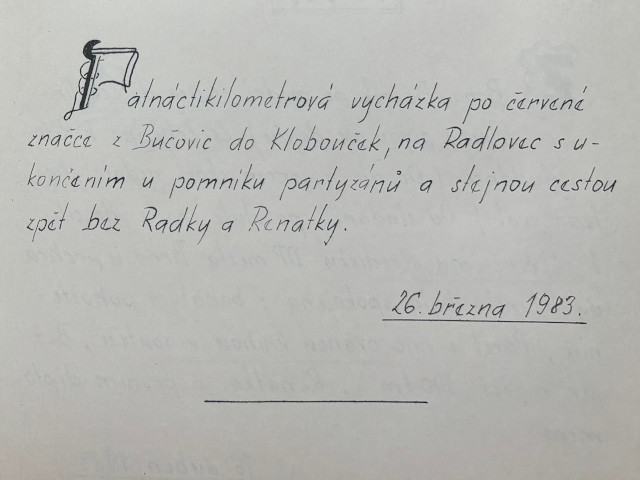 Patnáctikilometrová vycházka po červené
značce z Bučovic do Klobouček, na Radlovec s u-
končením u pomníku partyzánů a stejnou cestou
zpět bez Radky a Renatky.
26. března 1983.